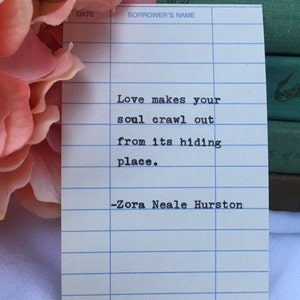 DATE BORROWER'S NAME
Love makes your
soul crawl out
from its hiding
place.
-Zora Neale Hurston